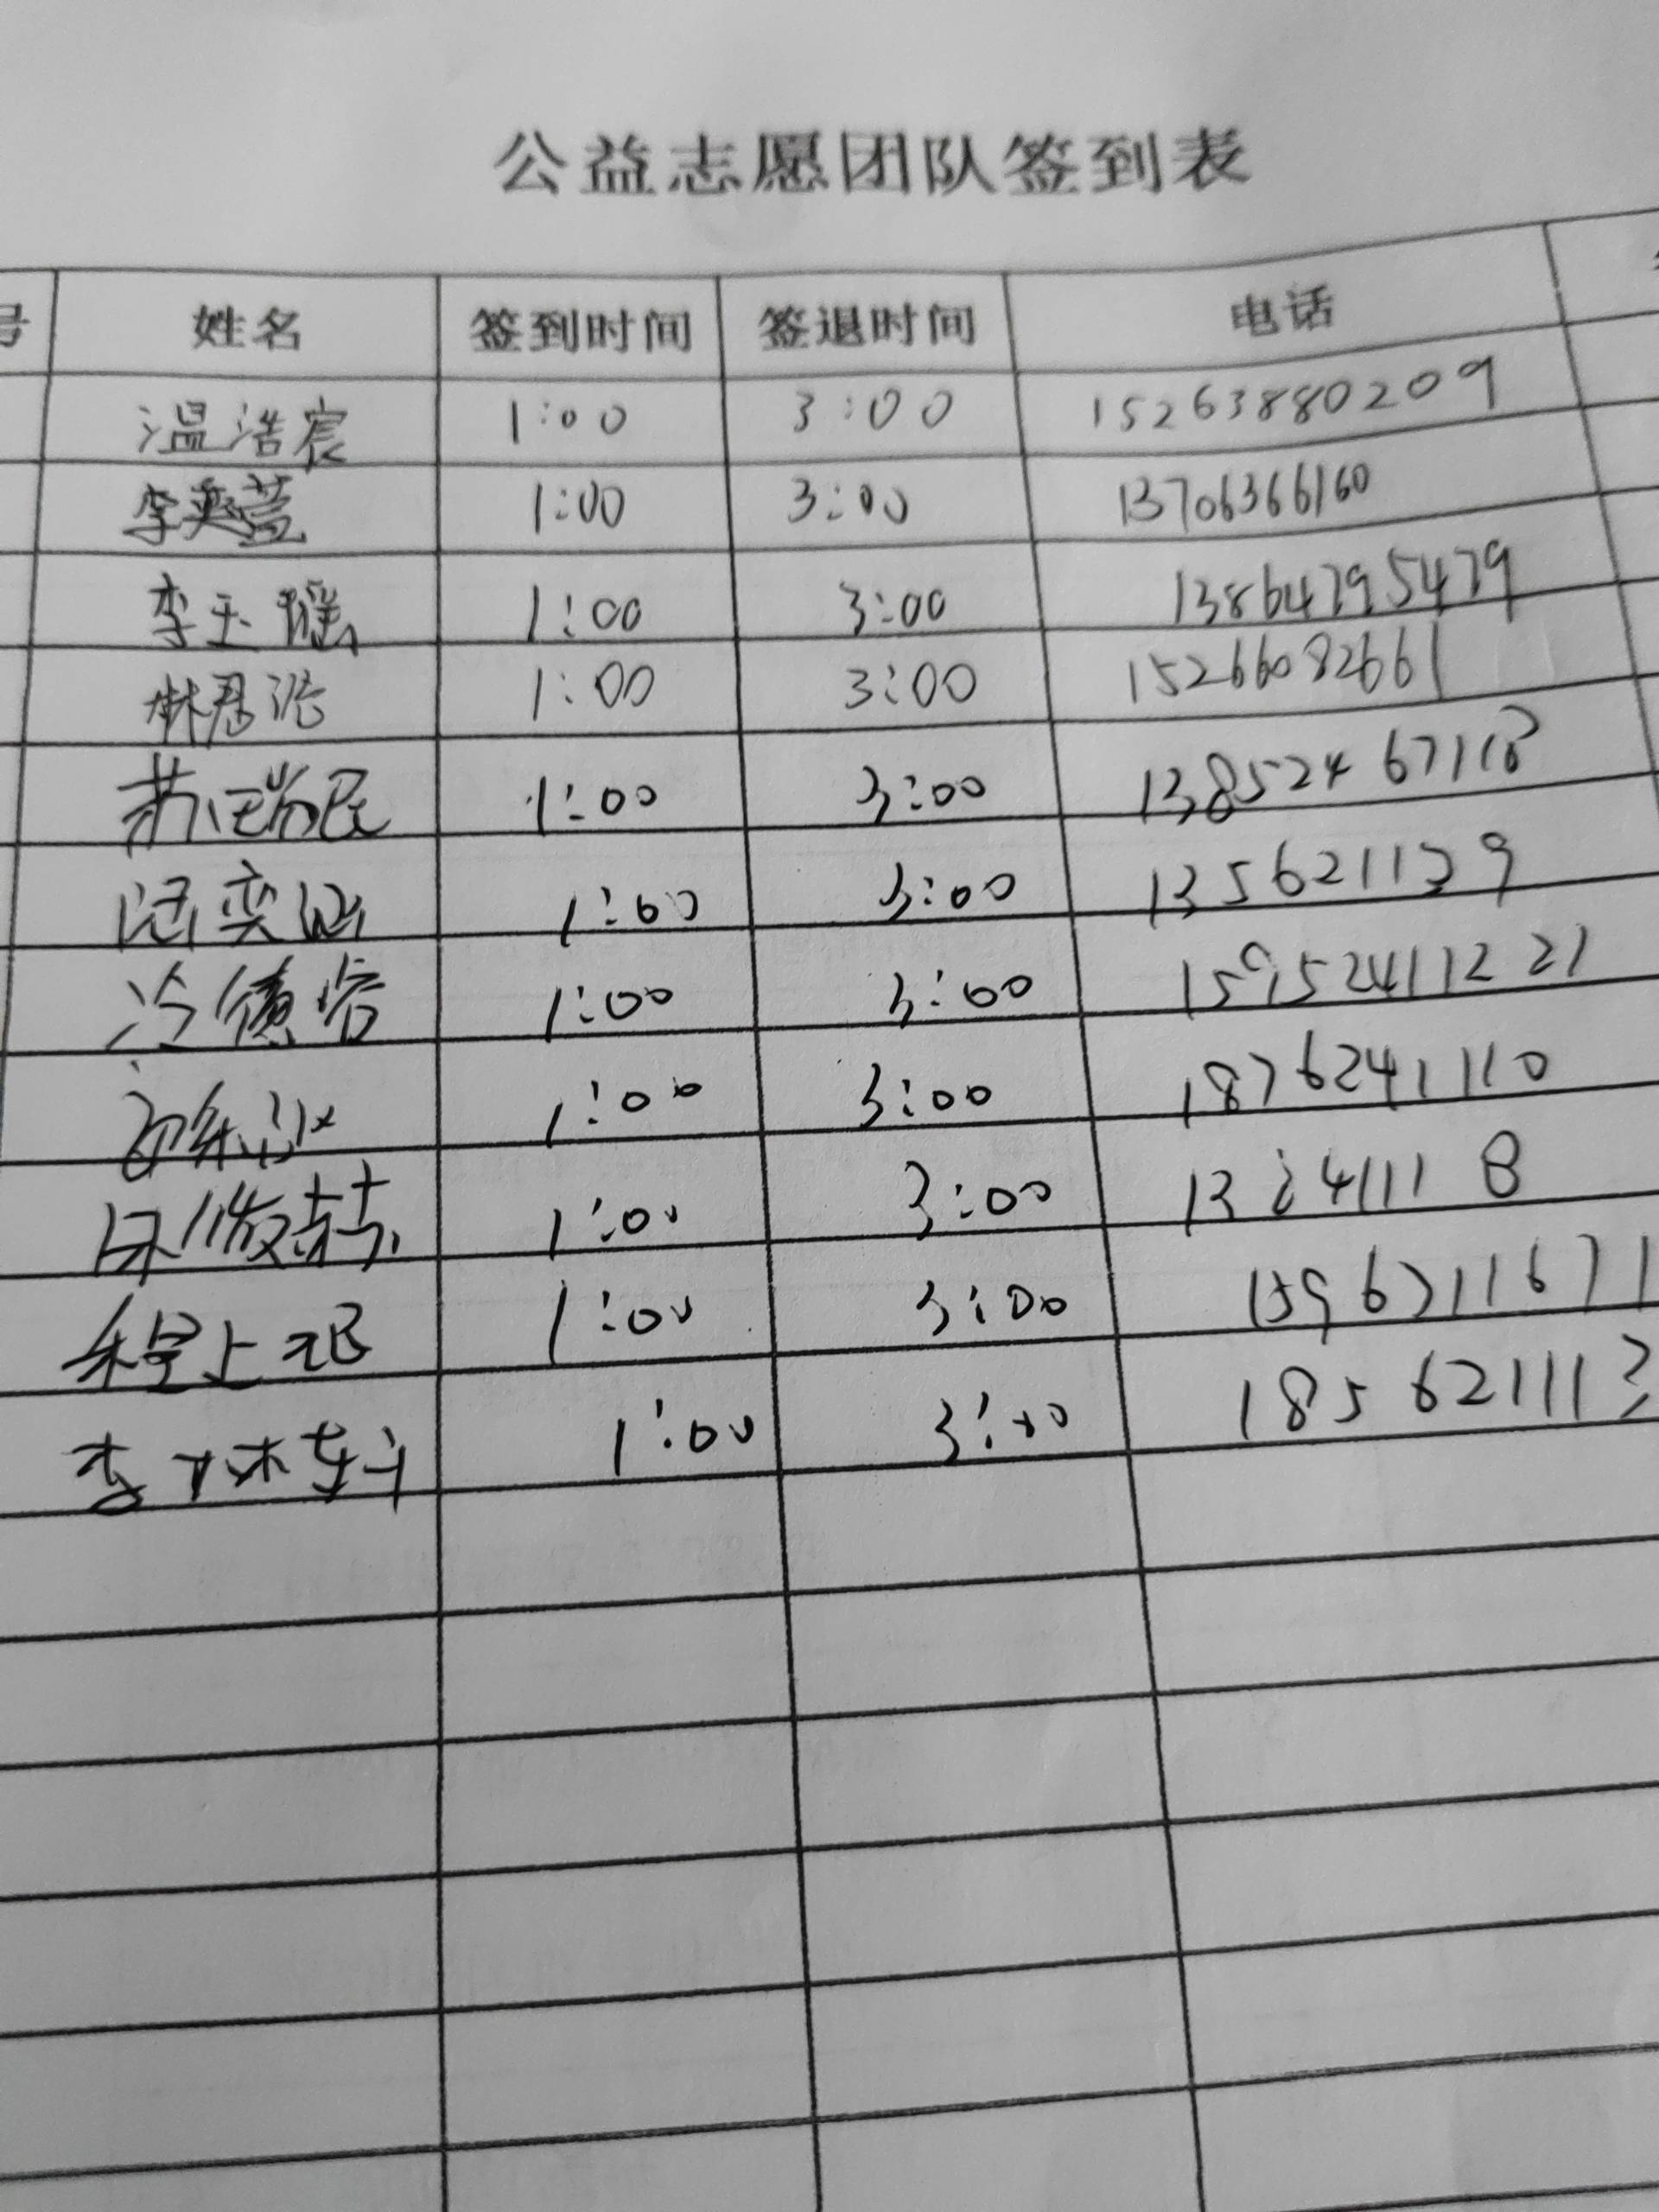 公益志愿团队签到表
号 姓名 签到时间 签退时间 电话
温浩宸 1:00 3:00 15263880209
李奕萱 1:00 3:00 13706366160
李玉瑶 1:00 3:00 13864795479
林君浩 1:00 3:00 15266082661
苏瑞民 1:00 3:00 13852467118
1:00 3:00 135621129
1:00 3:00 15952411221
1:00 3:00 1876241110
1:00 3:00
程上 1:00 3:00 1596211671
李 1:00 3:00 185621113